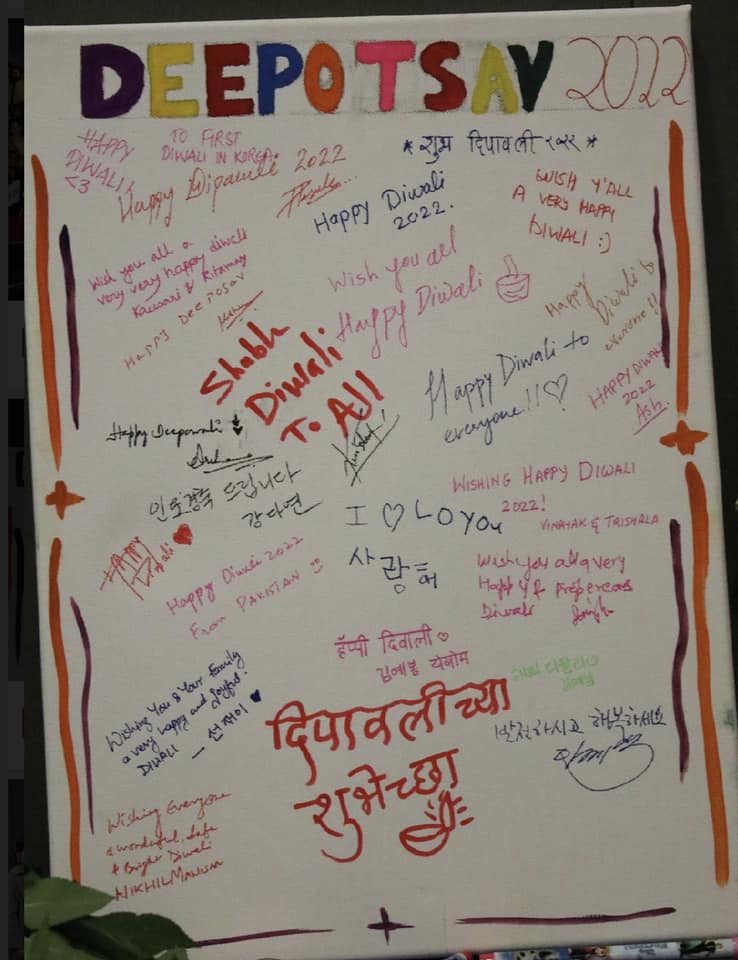 DEEPOTSAV 2022
HAPPY
DIWALI
<3
TO FIRST
DIWALI IN KOREA
Happy Dipawali 2022
* शुभ दिपावली २०२२ *
Happy Diwali
2022.
WISH Y'ALL
A VERY HAPPY
DIWALI :)
Wish you all a
very very happy diwali
Kaveri & Ritamay
HAPPY DEEPOSAV
Wish you all
Happy Diwali
Happy
Diwali to
everyone!!
Shubh
Diwali
To All
Happy Diwali to
everyone!!♡
HAPPY DIWALI
2022
Ash
Happy Deepawali
인도경축 드립니다
강다연
WISHING HAPPY DIWALI
2022!
VINAYAK & TRISHALA
I ♡ LO YOU
사랑해
HAPPY
Diwali ♥
Happy Diwali 2022
From PAKISTAN
Wish you all a very
Happy & Propereous
Diwali
हॅप्पी दिवाली ♡
Wishing You & Your Family
a very happy and joyful.
DIWALI
दिपावलीच्या
शुभेच्छा
발전하시고 행복하세요
Wishing Everyone
a wonderful, Safe
& Bright Diwali